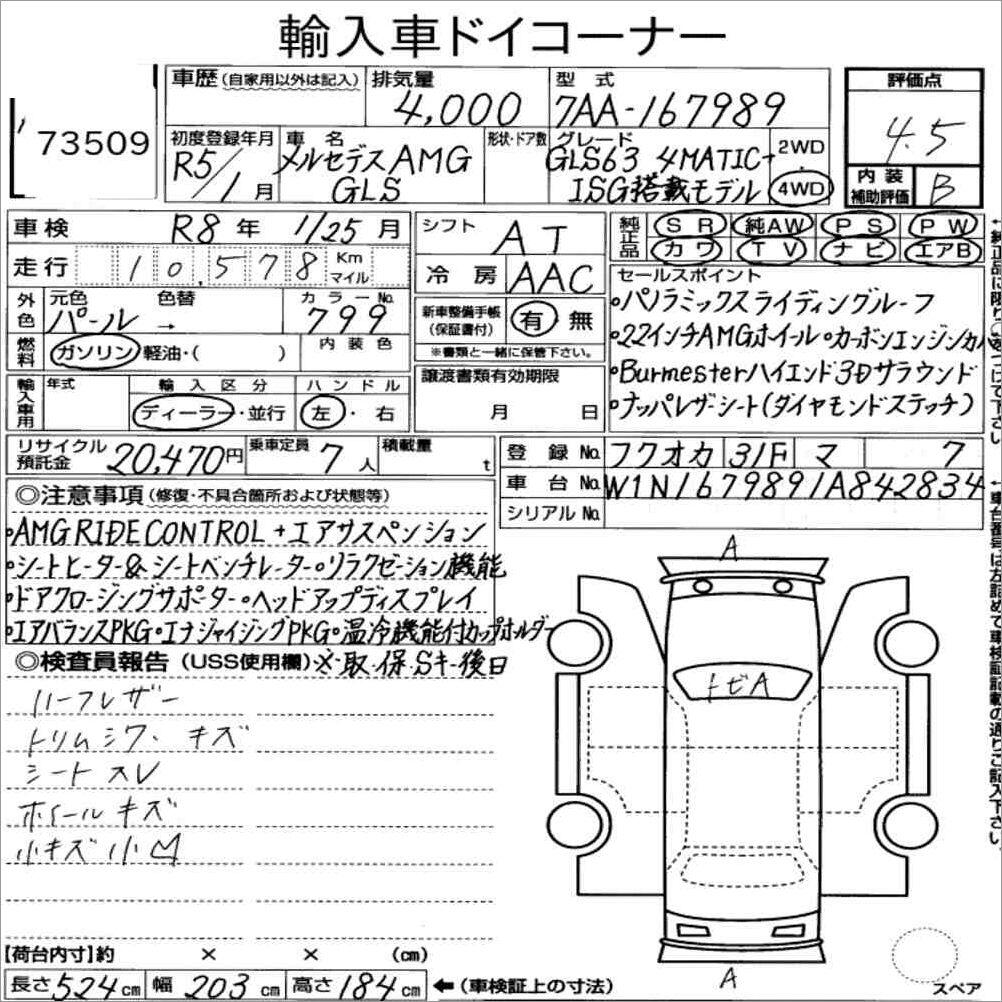 輸入車ドイコーナー
73509
車歴(自家用以外は記入) 排気量 4,000 型式 7AA-167989
評価点 4.5
初度登録年月 R5/1月 車名 メルセデスAMG GLS 形状・ドア数 グレード GLS63 4MATIC+ ISG搭載モデル 2WD・4WD
内装補助評価 B
車検 R8年 1/25月
シフト AT
純正品 SR 純AW PS PW
カワ TV ナビ エアB
走行 10,578 Km マイル
冷房 AAC
外色 元色 パール → 色替 カラーNo. 799
新車整備手帳(保証書付) 有 無
※書類と一緒に保管下さい。
燃料 ガソリン・軽油・( ) 内装色
セールスポイント
•パノラミックスライディングルーフ
•22インチAMGホイール•カーボンエンジンカバ
•Burmesterハイエンド3Dサラウンド
•ナッパレザーシート(ダイヤモンドステッチ)
輸入車用 年式 輸入区分 ディーラー・並行 ハンドル 左・右
譲渡書類有効期限 月 日
リサイクル預託金 20,470円 乗車定員 7人 積載量 t
登録No. フクオカ 31F マ 7
車台No. W1N1679891A842834
シリアルNo.
◎注意事項(修復・不具合箇所および状態等)
•AMG RIDE CONTROL+エアサスペンション
•シートヒーター&シートベンチレーター•リラクゼーション機能
•ドアクロージングサポーター•ヘッドアップディスプレイ
•エアバランスPKG•エナジャイジングPKG•温冷機能付カップホルダー
◎検査員報告(USS使用欄)※・取・保・Sキ・後日
ハーフレザー
トリムシワ・キズ
シートスレ
ホイールキズ
小キズ小凹
A
トビA
A
【荷台内寸】約 × × (cm)
長さ524cm 幅203cm 高さ184cm ←(車検証上の寸法)
スペア
←車台番号は左詰めで車検証記載の通りご記入下さい。